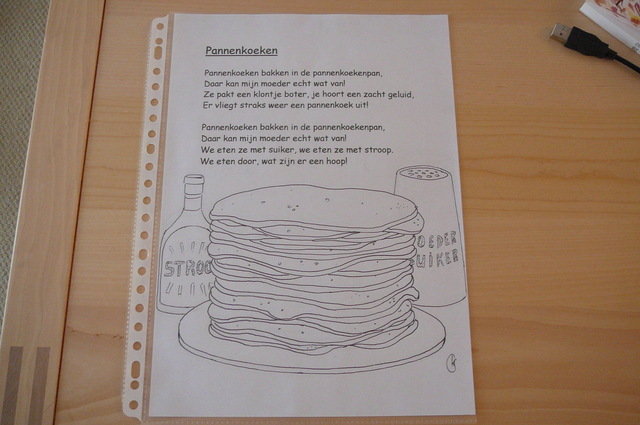 Pannenkoeken
Pannenkoeken bakken in de pannenkoekenpan,
Daar kan mijn moeder echt wat van!
Ze pakt een klontje boter, je hoort een zacht geluid,
Er vliegt straks weer een pannenkoek uit!
Pannenkoeken bakken in de pannenkoekenpan,
Daar kan mijn moeder echt wat van!
We eten ze met suiker, we eten ze met stroop.
We eten door, wat zijn er een hoop!
STROO